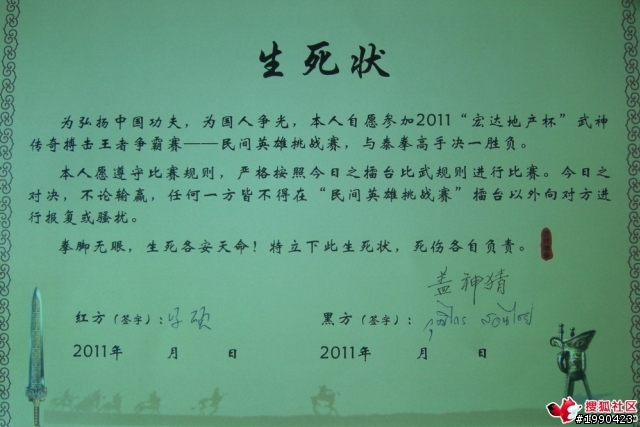 生死状
为弘扬中国功夫，为国人争光，本人自愿参加2011“宏达地产杯”武神
传奇搏击王者争霸赛——民间英雄挑战赛，与泰拳高手决一胜负。
本人愿遵守比赛规则，严格按照今日之擂台比武规则进行比赛。今日之
对决，不论输赢，任何一方皆不得在“民间英雄挑战赛”擂台以外向对方进
行报复或骚扰。
拳脚无眼，生死各安天命！特立下此生死状，死伤各自负责。
盖神猜
红方（签字）：
黑方（签字）：
2011年 月 日
2011年 月 日
搜狐社区
#1990423